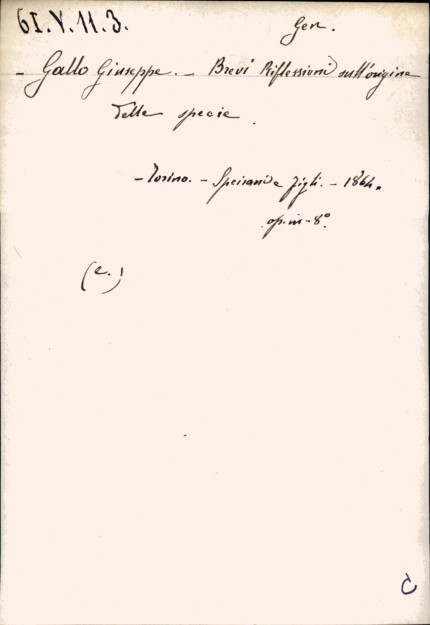 61.V.11.3.
Gen.
- Gallo Giuseppe. - Brevi Riflessioni sull'origine
delle specie.
- Torino. - Speirani e figli. - 1864.
op. in-8°.
(e.)
C